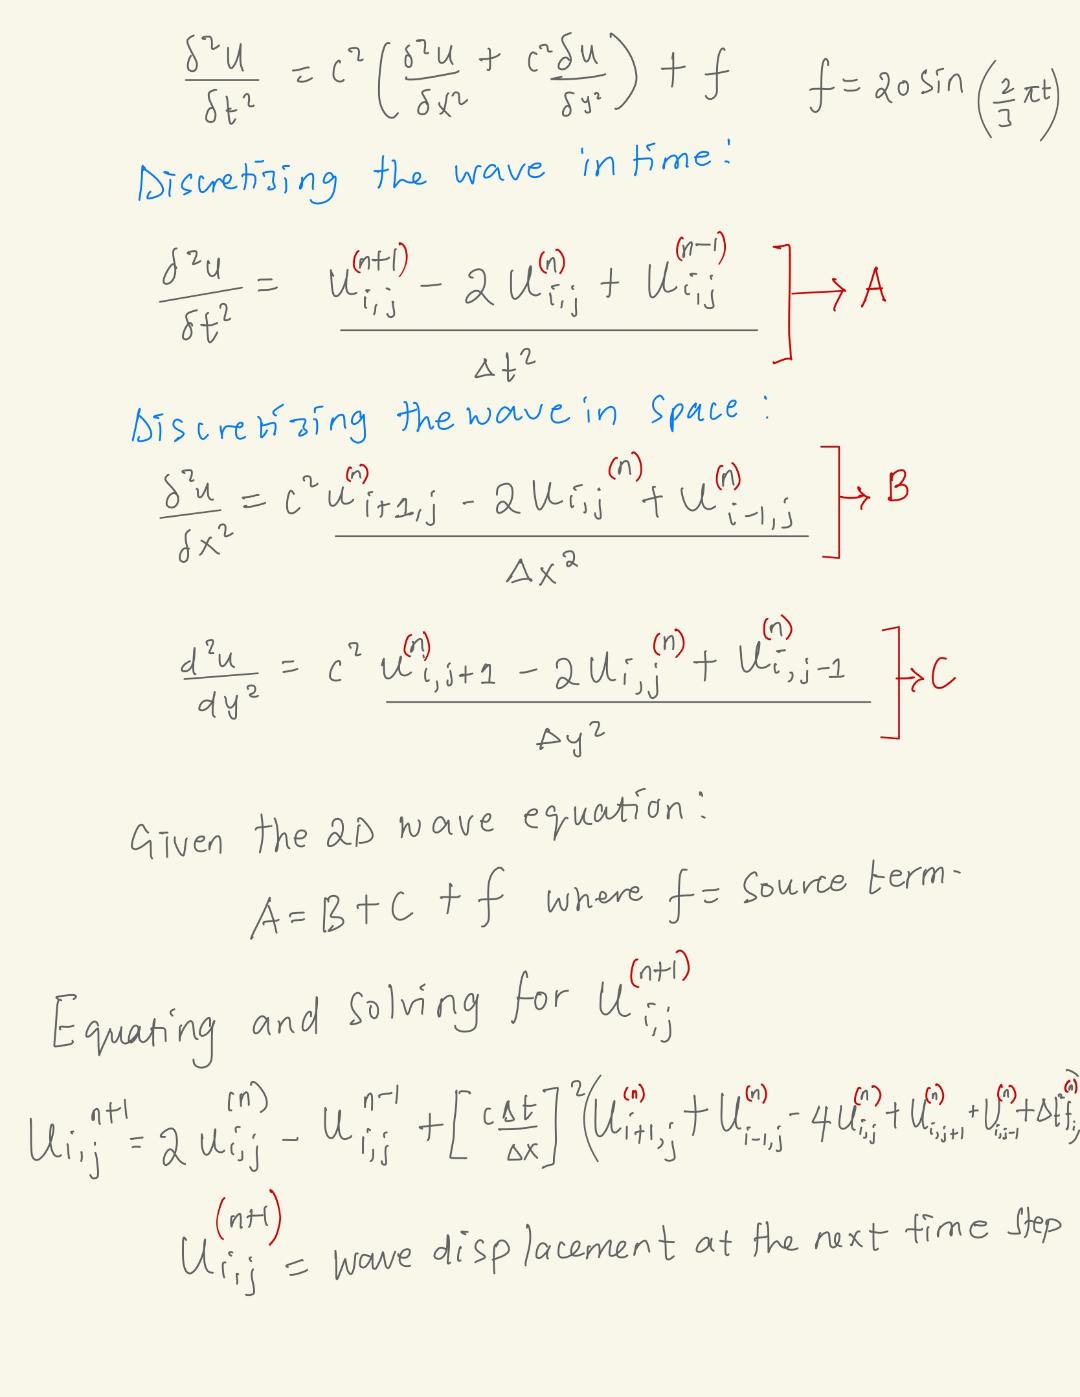 δ²u/δt² = c² (δ²u/δx² + c²δu/δy²) + f    f = 20 sin (2/3 πt)
Discretizing the wave in time:
δ²u/δt² = (u_{i,j}^{(n+1)} - 2u_{i,j}^{(n)} + u_{i,j}^{(n-1)}) / Δt² ] → A
Discretizing the wave in space:
δ²u/δx² = c² (u_{i+1,j}^{(n)} - 2u_{i,j}^{(n)} + u_{i-1,j}^{(n)}) / Δx² ] → B
d²u/dy² = c² (u_{i,j+1}^{(n)} - 2u_{i,j}^{(n)} + u_{i,j-1}^{(n)}) / Δy² ] → C
Given the 2D wave equation:
A = B + C + f where f = source term.
Equating and solving for u_{i,j}^{(n+1)}
u_{i,j}^{n+1} = 2u_{i,j}^{(n)} - u_{i,j}^{n-1} + [cΔt/Δx]² (u_{i+1,j}^{(n)} + u_{i-1,j}^{(n)} - 4u_{i,j}^{(n)} + u_{i,j+1}^{(n)} + u_{i,j-1}^{(n)} + Δt² f_{i,j}^{(n)})
u_{i,j}^{(n+1)} = wave displacement at the next time step